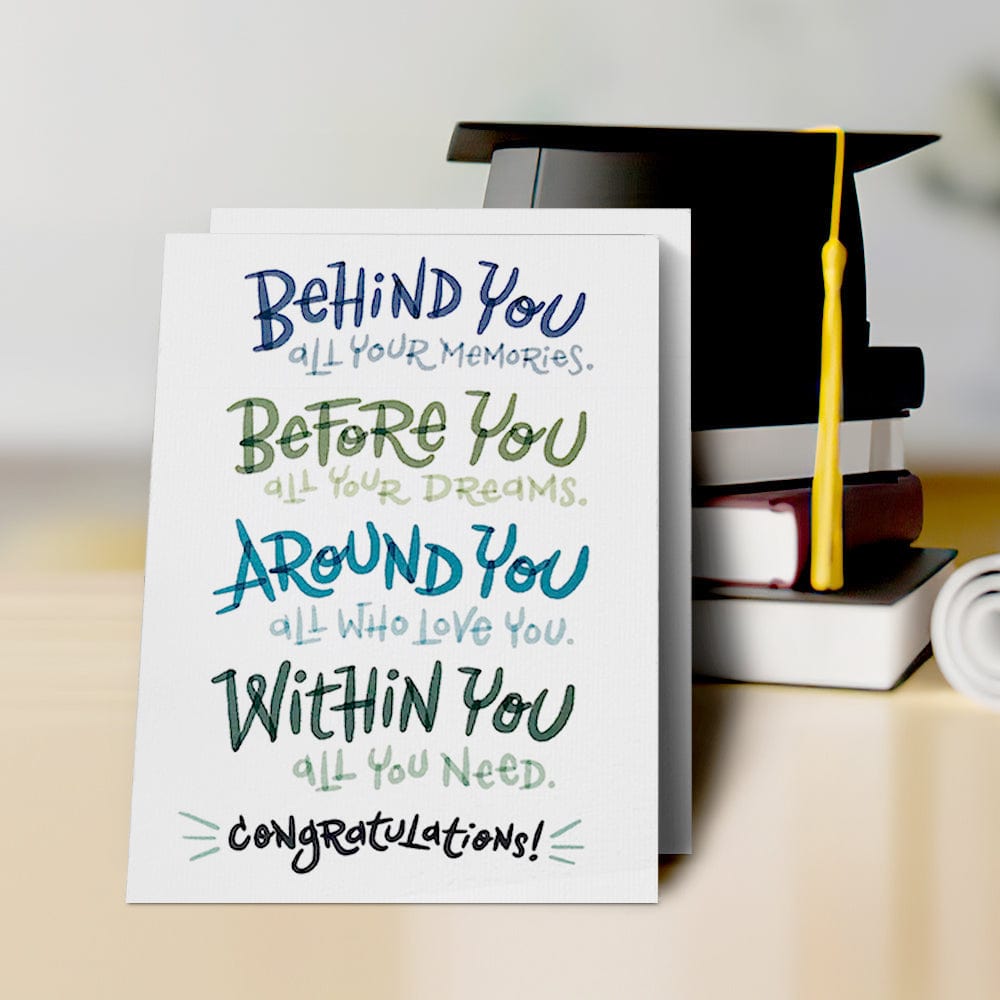 Behind You
all your memories.
Before You
all your dreams.
Around You
all who love you.
Within You
all you need.
Congratulations!